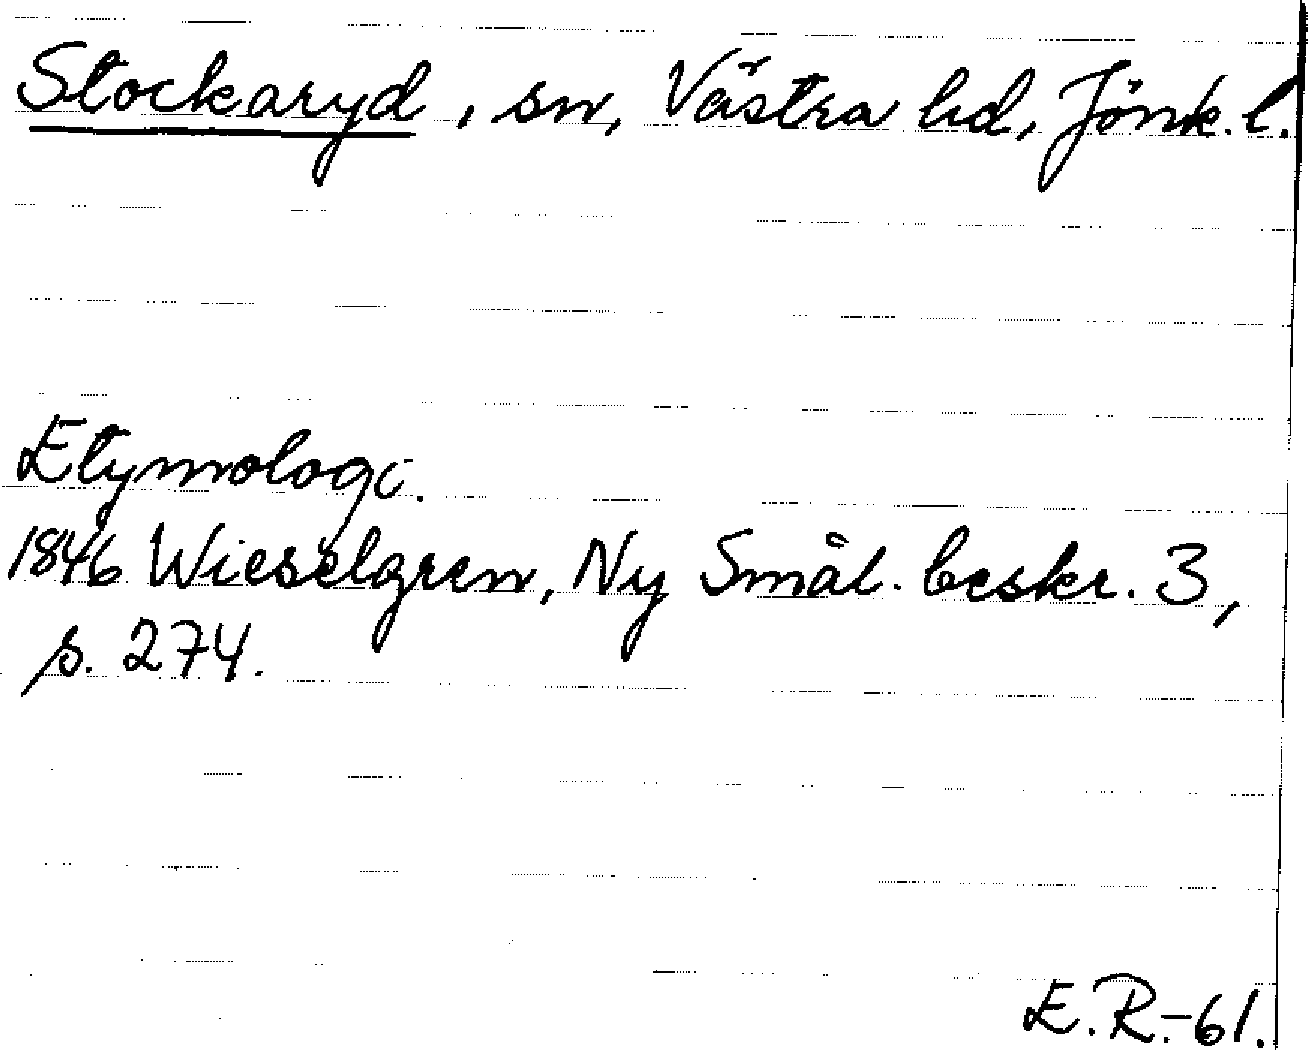 Stockaryd, sn, Västra hd, Jönk. l.
Etymologi.
1846 Wieselgren, Ny Smål. beskr. 3,
s. 274.
E.R.-61.